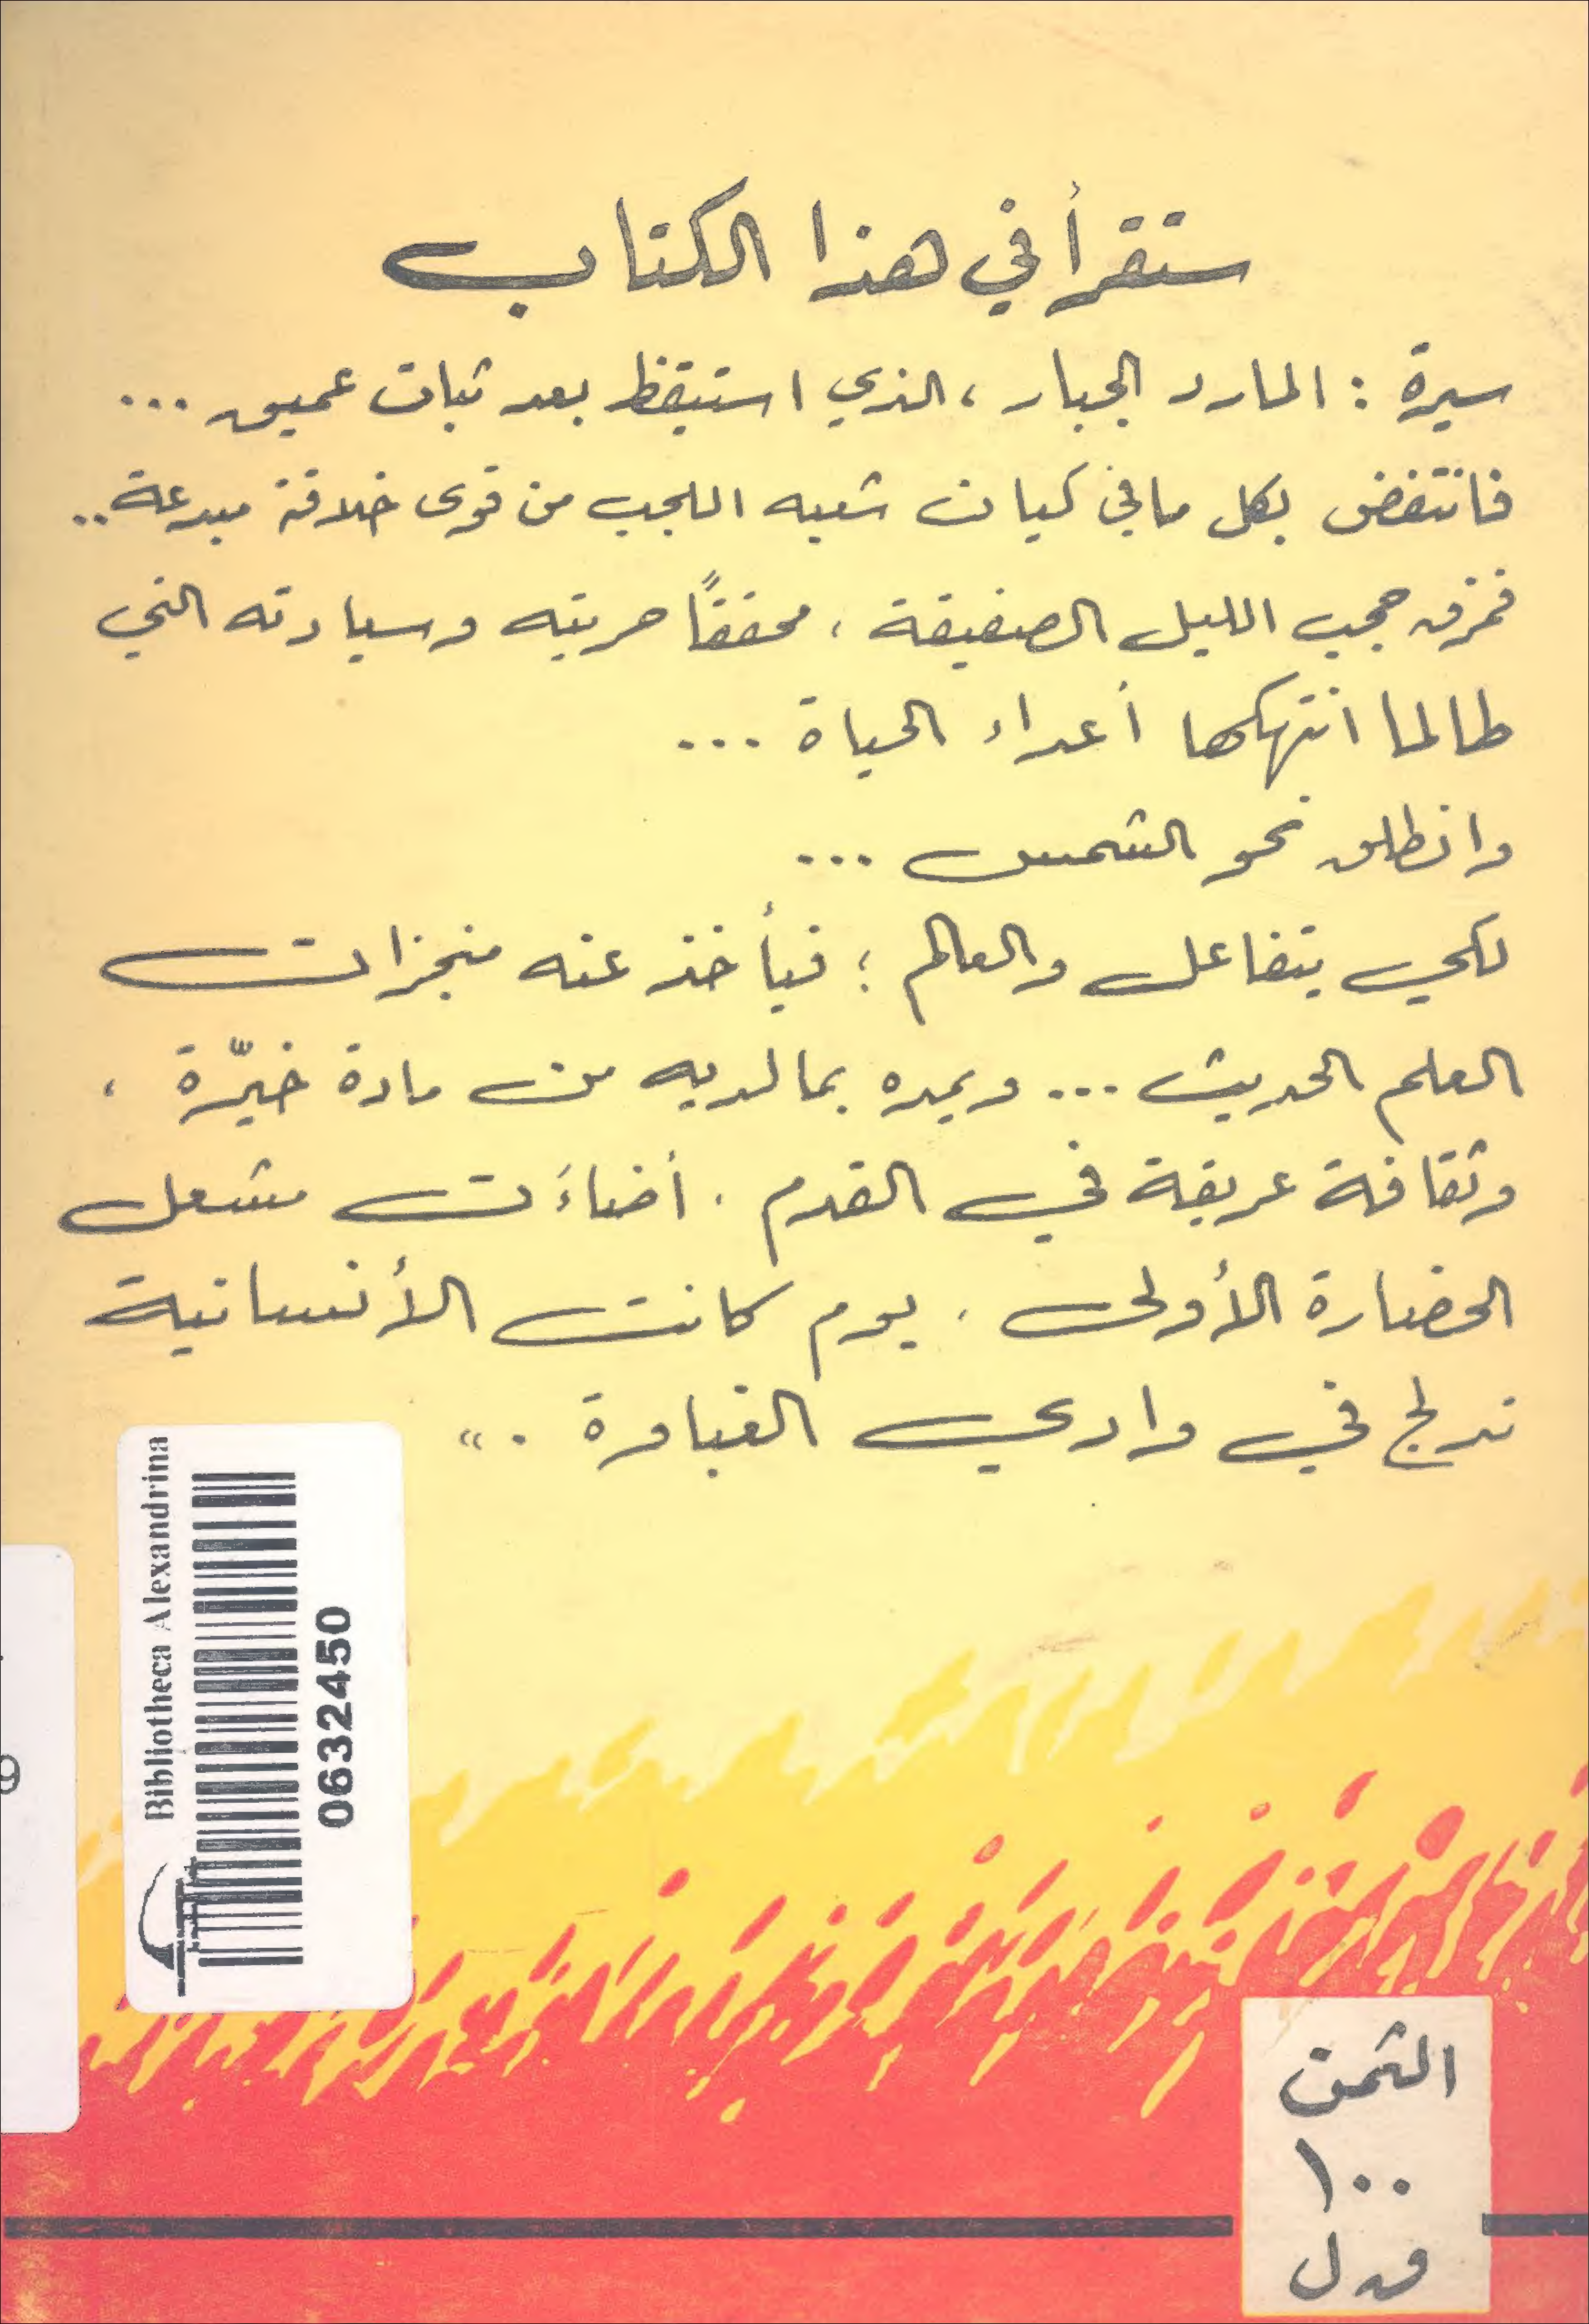 ستقرأ في هذا الكتاب
سيرة : المارد الجبار ، الذي استيقظ بعد ثبات عميق ...
فانتفض بكل ما في كيان شعبه اللجب من قوى خلاقة مبدعة ..
فمزق حجب الليل الصفيقة ، محققًا حريته وسيادته التي
طالما انتهكها أعداء الحياة ...
وانطلق نحو الشمس ...
لكي يتفاعل والعالم ؛ فيأخذ عنه منجزات
العلم الحديث ... ويمده بما لديه من مادة خيّرة ،
وثقافة عريقة في القدم . أضاءَت مشعل
الحضارة الأولى . يوم كانت الأنسانية
تدلج في وادي الغباوة . »
Bibliotheca Alexandrina
0632450
الثمن
١٠٠
ق.ل